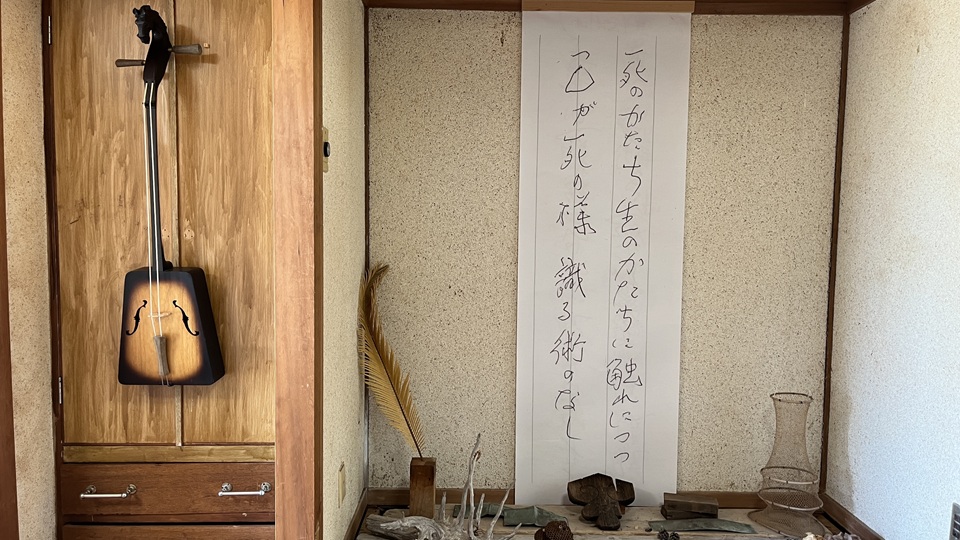 死のかたち生のかたちに触れにつつ
己が死の様 識る術のなし